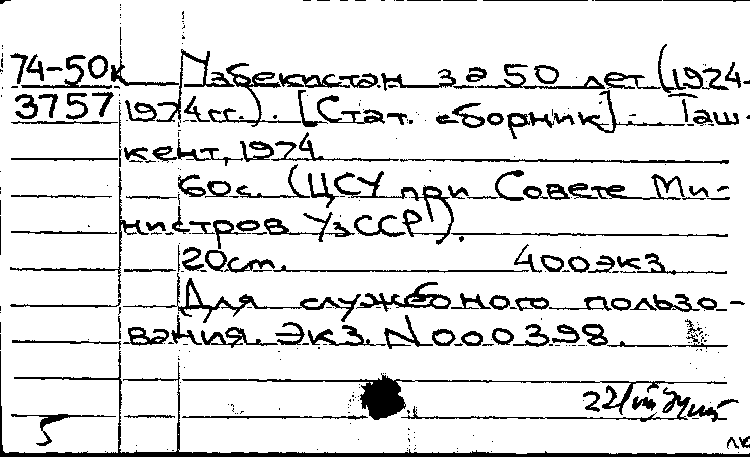 74-50к Узбекистан за 50 лет (1924-
3757 1974гг.). [Стат. сборник]. Таш-
кент, 1974.
60с. (ЦСУ при Совете Ми-
нистров УзССР).
20см. 400экз.
Для служебного пользо-
вания. Экз. N000398.
5